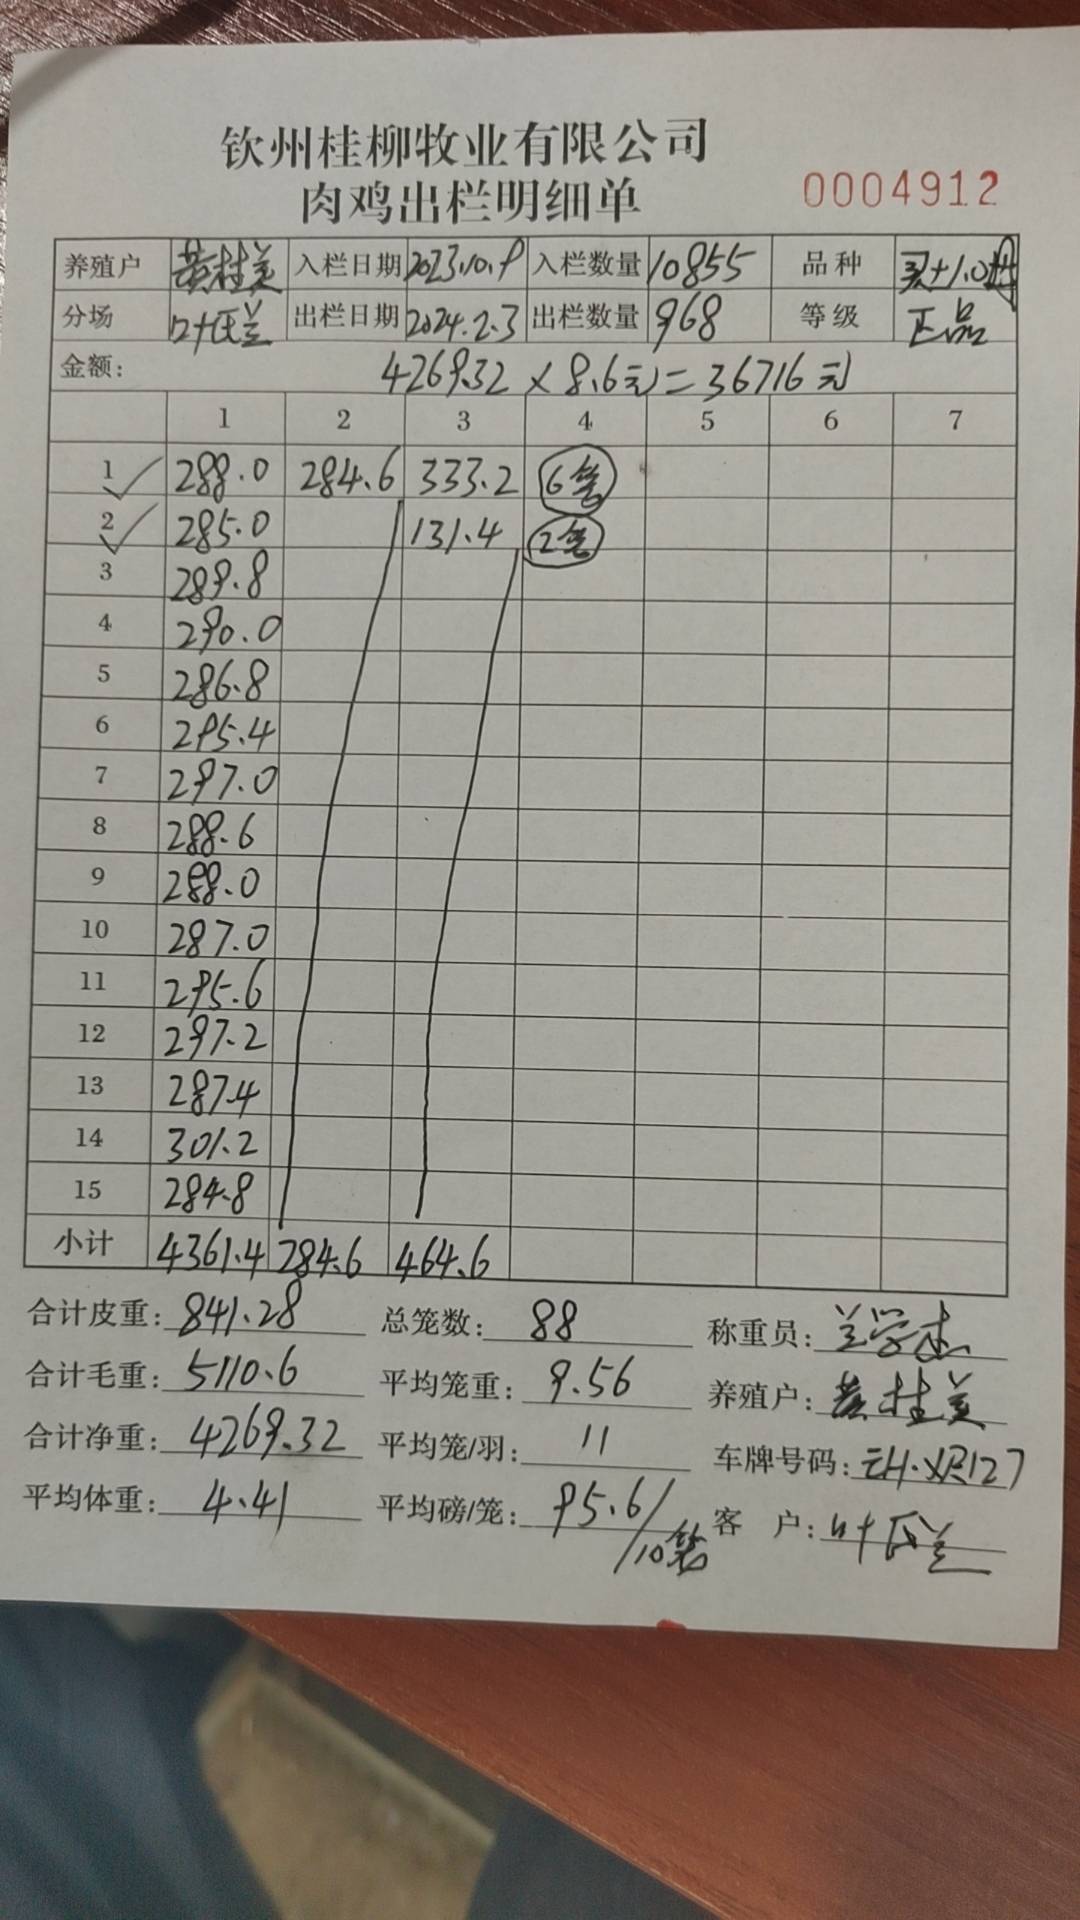 钦州桂柳牧业有限公司
肉鸡出栏明细单 0004912
养殖户 黄桂美 入栏日期 2023.10.9 入栏数量 10855 品种
分场 叶氏兰 出栏日期 2024.2.3 出栏数量 968 等级 正品
金额: 4269.32 × 8.6元 = 36716元
1 2 3 4 5 6 7
1 288.0 284.6 333.2 6笼
2 285.0 131.4 2笼
3 289.8
4 290.0
5 286.8
6 295.4
7 297.0
8 288.6
9 288.0
10 287.0
11 295.6
12 297.2
13 287.4
14 301.2
15 284.8
小计 4361.4 284.6 464.6
合计皮重: 841.28 总笼数: 88 称重员:
合计毛重: 5110.6 平均笼重: 9.56 养殖户: 黄桂美
合计净重: 4269.32 平均笼/羽: 11 车牌号码:
平均体重: 4.41 平均磅/笼: 95.6/10笼 客 户: 叶氏兰